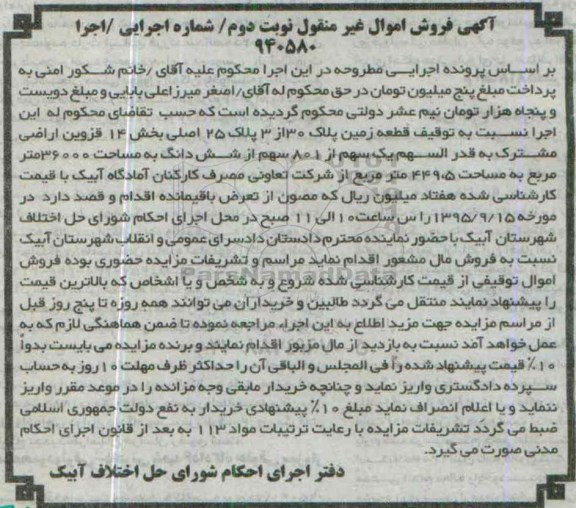 آگهی فروش اموال غیر منقول نوبت دوم/ شماره اجرایی /اجرا
۹۴۰۵۸۰
بر اساس پرونده اجرایی مطروحه در این اجرا محکوم علیه آقای/خانم شکور امنی به
پرداخت مبلغ پنج میلیون تومان در حق محکوم له آقای/اصغر میرزاعلی بابایی و مبلغ دویست
و پنجاه هزار تومان نیم عشر دولتی محکوم گردیده است که حسب تقاضای محکوم له این
اجرا نسبت به توقیف قطعه زمین پلاک ۳۰از ۳ پلاک ۲۵ اصلی بخش ۱۴ قزوین اراضی
مشترک به قدر السهم یک سهم از ۸۰۱ سهم از شش دانگ به مساحت ۳۶۰۰۰۰متر
مربع به مساحت ۴۴۹.۵ متر مربع از شرکت تعاونی مصرف کارکنان آمادگاه آبیک با قیمت
کارشناسی شده هفتاد میلیون ریال که مصون از تعرض باقیمانده اقدام و قصد دارد در
مورخه ۱۳۹۵/۹/۱۵راس ساعت ۱۰الی ۱۱ صبح در محل اجرای احکام شورای حل اختلاف
شهرستان آبیک با حضور نماینده محترم دادستان دادسرای عمومی و انقلاب شهرستان آبیک
نسبت به فروش مال مشعور اقدام نماید مراسم و تشریفات مزایده حضوری بوده فروش
اموال توقیفی از قیمت کارشناسی شده شروع و به شخص و یا اشخاص که بالاترین قیمت
را پیشنهاد نمایند منتقل می گردد طالبین و خریداران می توانند همه روزه تا پنج روز قبل
از مراسم مزایده جهت مزید اطلاع به این اجراء مراجعه نموده تا ضمن هماهنگی لازم که به
عمل خواهد آمد نسبت به بازدید از مال مزبور اقدام نمایند و برنده مزایده می بایست بدوا
۱۰٪ قیمت پیشنهاد شده را فی المجلس و الباقی آن را حداکثر ظرف مهلت ۱۰ روز به حساب
سپرده دادگستری واریز نماید و چنانچه خریدار مابقی وجه مزانده را در موعد مقرر واریز
ننماید و یا اعلام انصراف نماید مبلغ ۱۰٪ پیشنهادی خریدار به نفع دولت جمهوری اسلامی
ضبط می گردد تشریفات مزایده با رعایت ترتیبات مواد ۱۱۳ به بعد از قانون اجرای احکام
مدنی صورت می گیرد.
دفتر اجرای احکام شورای حل اختلاف آبیک
ParsNamadData